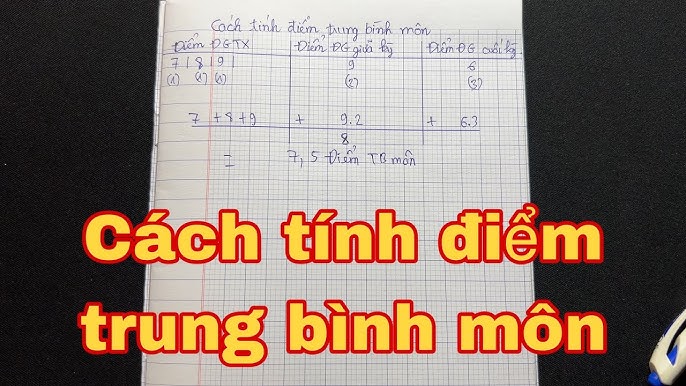 Cách tính điểm trung bình môn
Điểm ĐGTX Điểm ĐG giữa kỳ Điểm ĐG cuối kỳ
7 | 8 | 9 | 9 6
(1) (1) (1) (2) (3)
7 + 8 + 9 + 9.2 + 6.3
8
= 7,5 Điểm TB môn
Cách tính điểm
trung bình môn